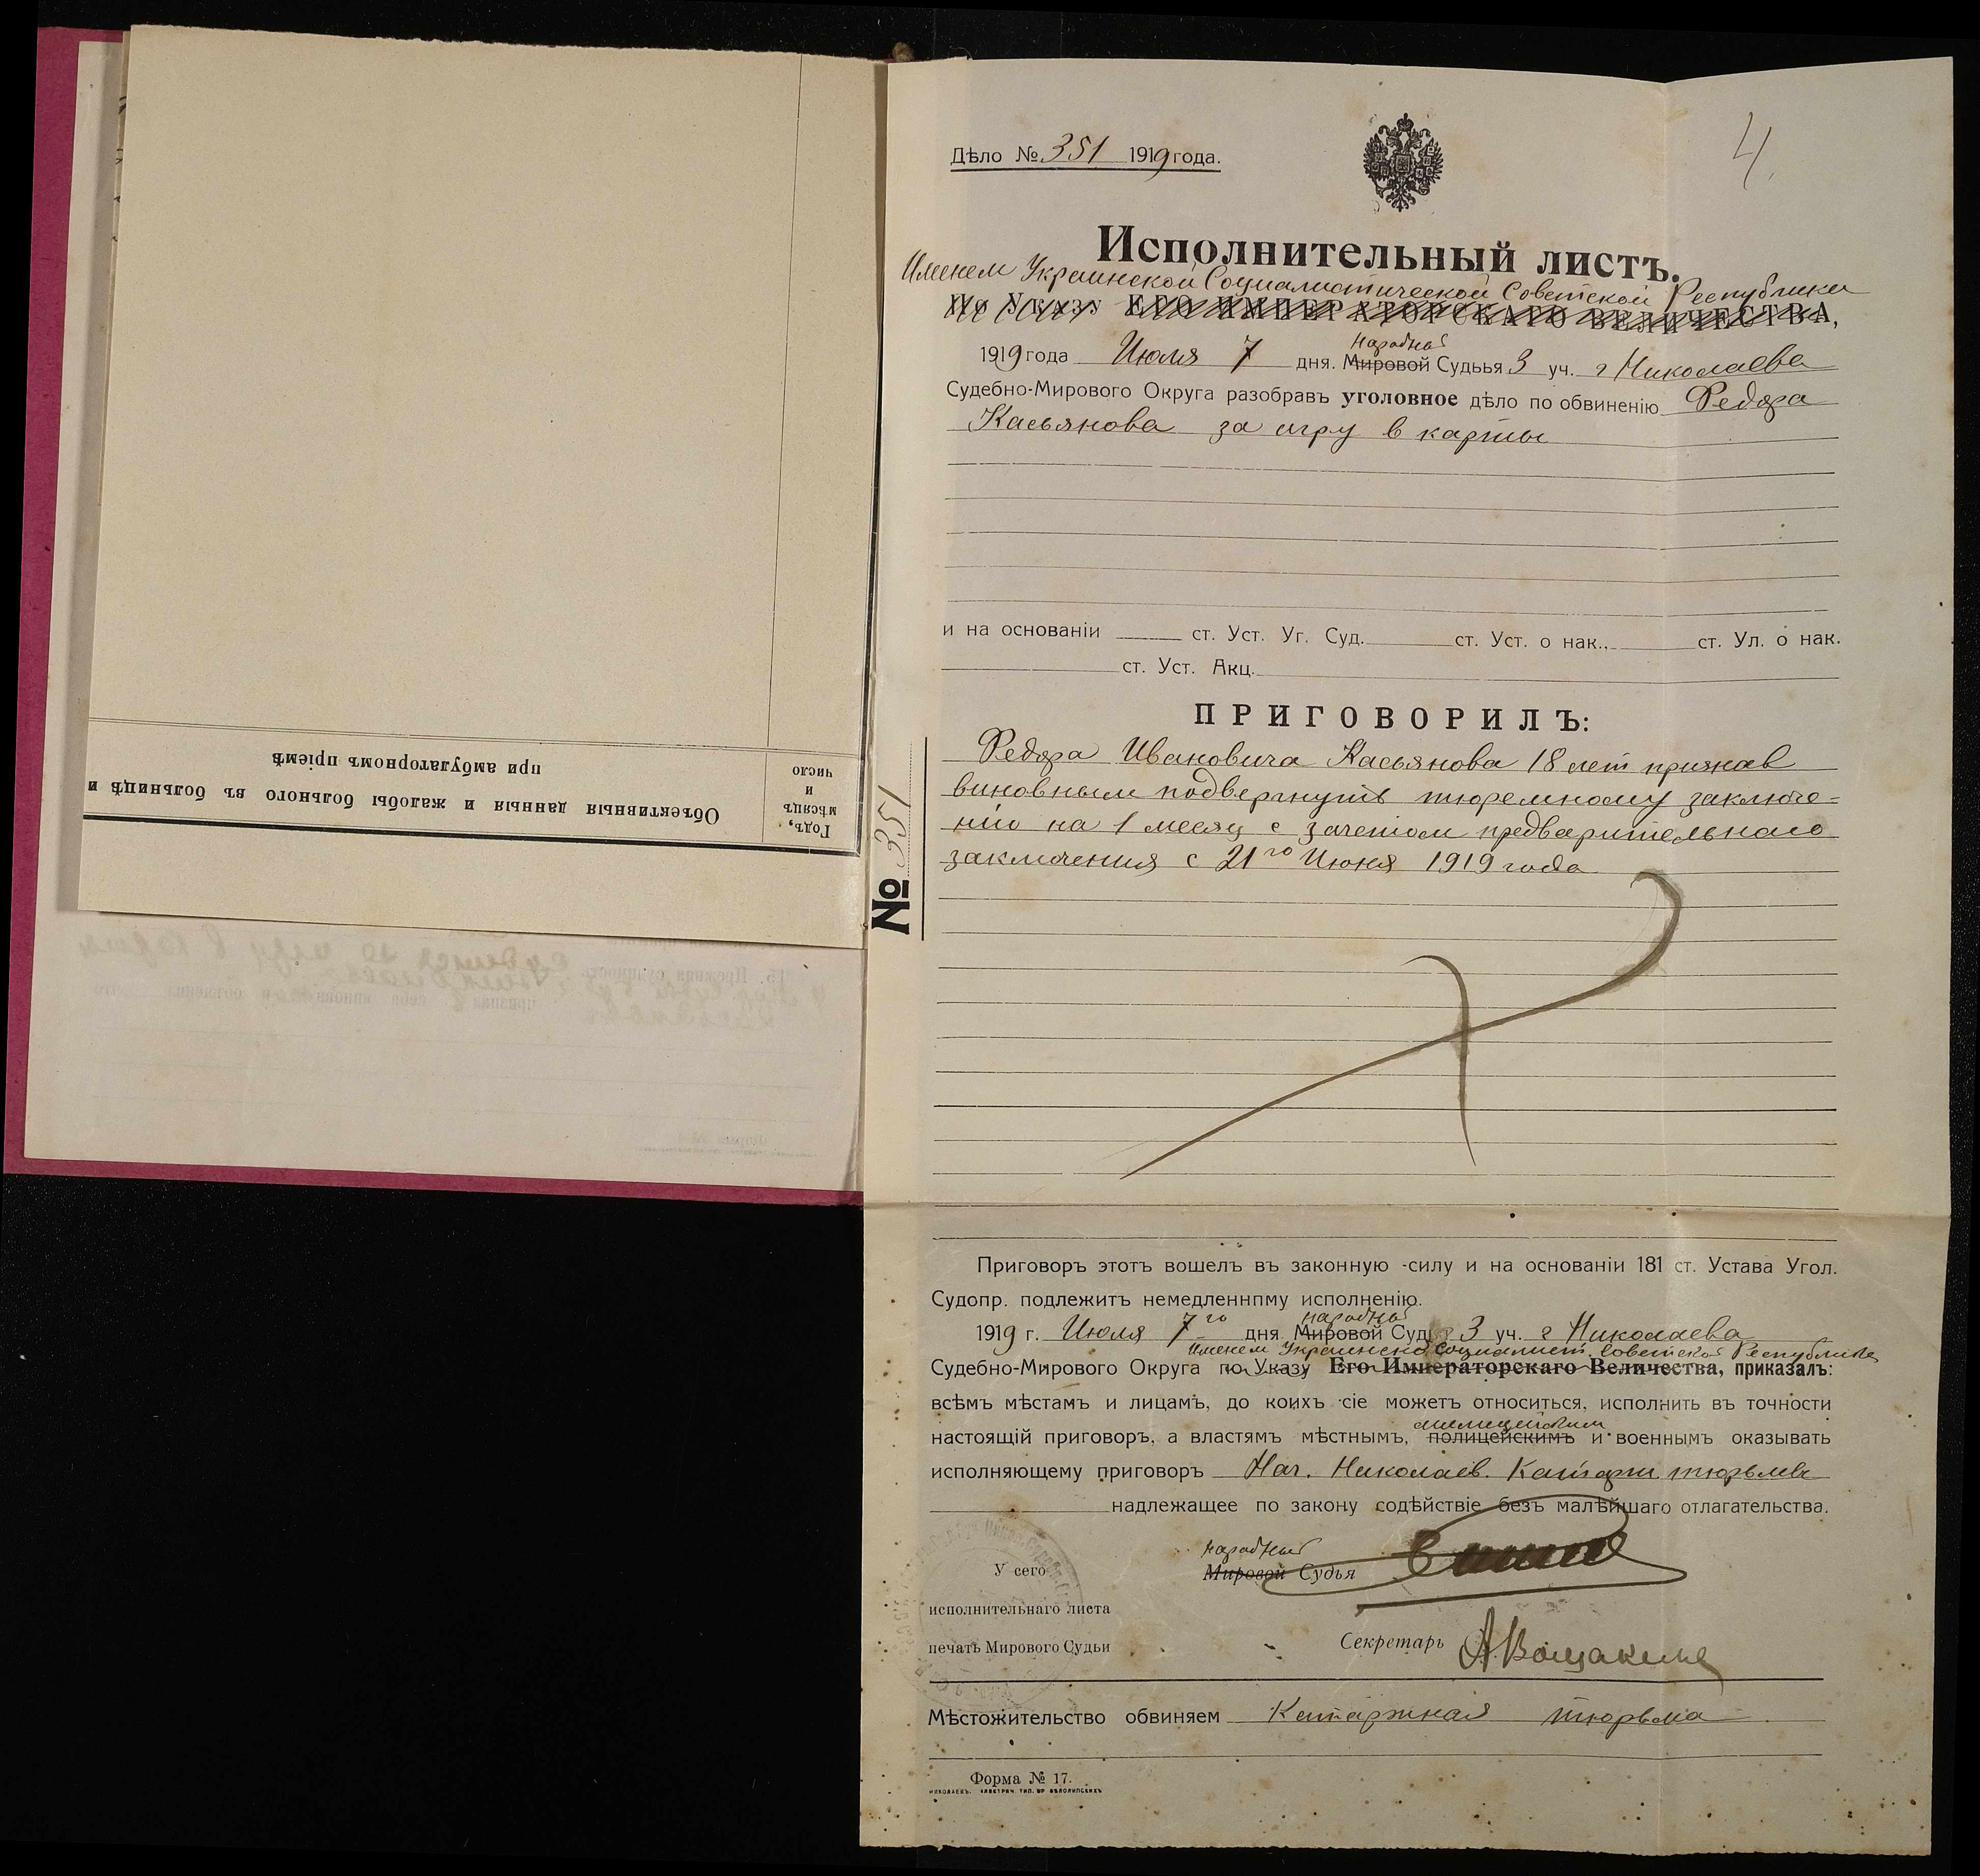 Объективныя данныя и жалобы больного въ больницѣ и
при амбулаторномъ пріемѣ
Годъ,
мѣсяцъ
и
число
Дѣло № 351 1919 года.
4.
Исполнительный листъ.
Именем Украинской Социалистической Советской Республики
По Указу ЕГО ИМПЕРАТОРСКАГО ВЕЛИЧЕСТВА,
народный
1919 года Июля 7 дня. Мировой Судьья 3 уч. г Николаева
Судебно-Мирового Округа разобравъ уголовное дѣло по обвиненію Федора
Касьянова за игру в карты
и на основаніи ст. Уст. Уг. Суд. ст. Уст. о нак., ст. Ул. о нак.
ст. Уст. Акц.
ПРИГОВОРИЛЪ:
Федора Ивановича Касьянова 18 лет признав
виновным подвергнуть тюремному заключе=
нию на 1 месяц с зачетом предварительнаго
заключения с 21го Июня 1919 года
№ 351
Приговоръ этотъ вошелъ въ законную силу и на основаніи 181 ст. Устава Угол.
Судопр. подлежитъ немедленнпму исполненію.
народный
1919 г. Июля 7го дня Мировой Суд 3 уч. г Николаева
Именем Украинской социалист. Советской Республики
Судебно-Мирового Округа по Указу Его Императорскаго Величества, приказалъ:
всѣмъ мѣстамъ и лицамъ, до коихъ сіе можетъ относиться, исполнить въ точности
милицейским
настоящій приговоръ, а властямъ мѣстнымъ, полицейскимъ и военнымъ оказывать
исполняющему приговоръ Нач. Николаев. Каторжн. тюрьмы
надлежащее по закону содѣйствіе безъ малѣйшаго отлагательства.
народный
Мировой Судья
У сего
исполнительнаго листа
печать Мирового Судьи
Секретарь
Мѣстожительство обвиняем Каторжная тюрьма
Форма № 17.